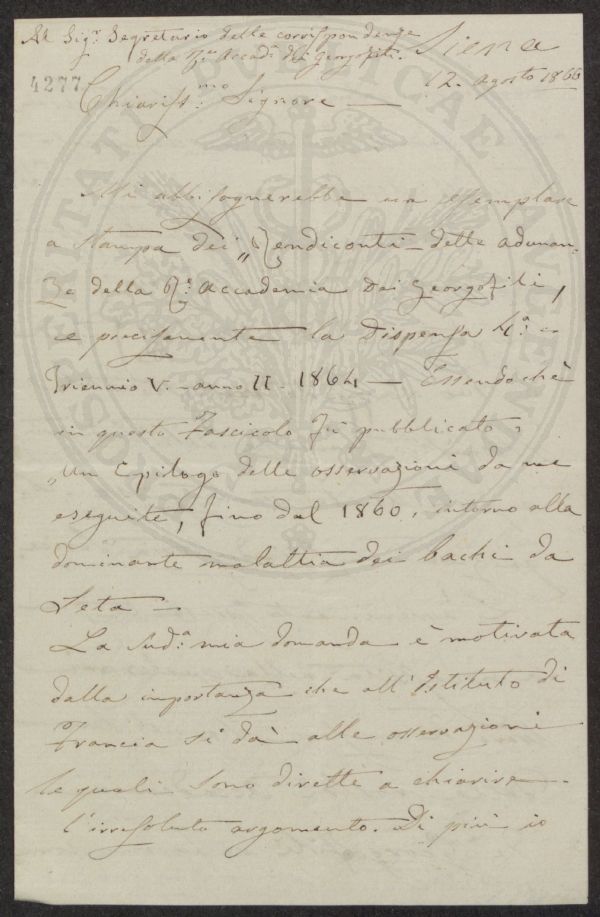 Al Sigr. Segretario delle corrispondenze
della R. Accad. dei Georgofili.
Siena
12. Agosto 1866
4277
Chiariss.mo Signore —
PROSPERITATI PUBLICAE AUGENDAE
Mi abbisognerebbe un esemplare
a stampa dei „Rendiconti delle adunan-
ze della R. Accademia dei Georgofili,
e precisamente la Dispensa 4.a =
Triennio V. - anno II - 1864 — Essendochè
in questo Fascicolo fù pubblicato,
„Un Epilogo delle osservazioni da me
eseguite, fino dal 1860, intorno alla
dominante malattia dei bachi da
Seta —
La Sud.a mia domanda è motivata
dalla importanza che all'Istituto di
Francia si dà alle osservazioni
le quali sono dirette a chiarire
l'irresoluto argomento. Di più io